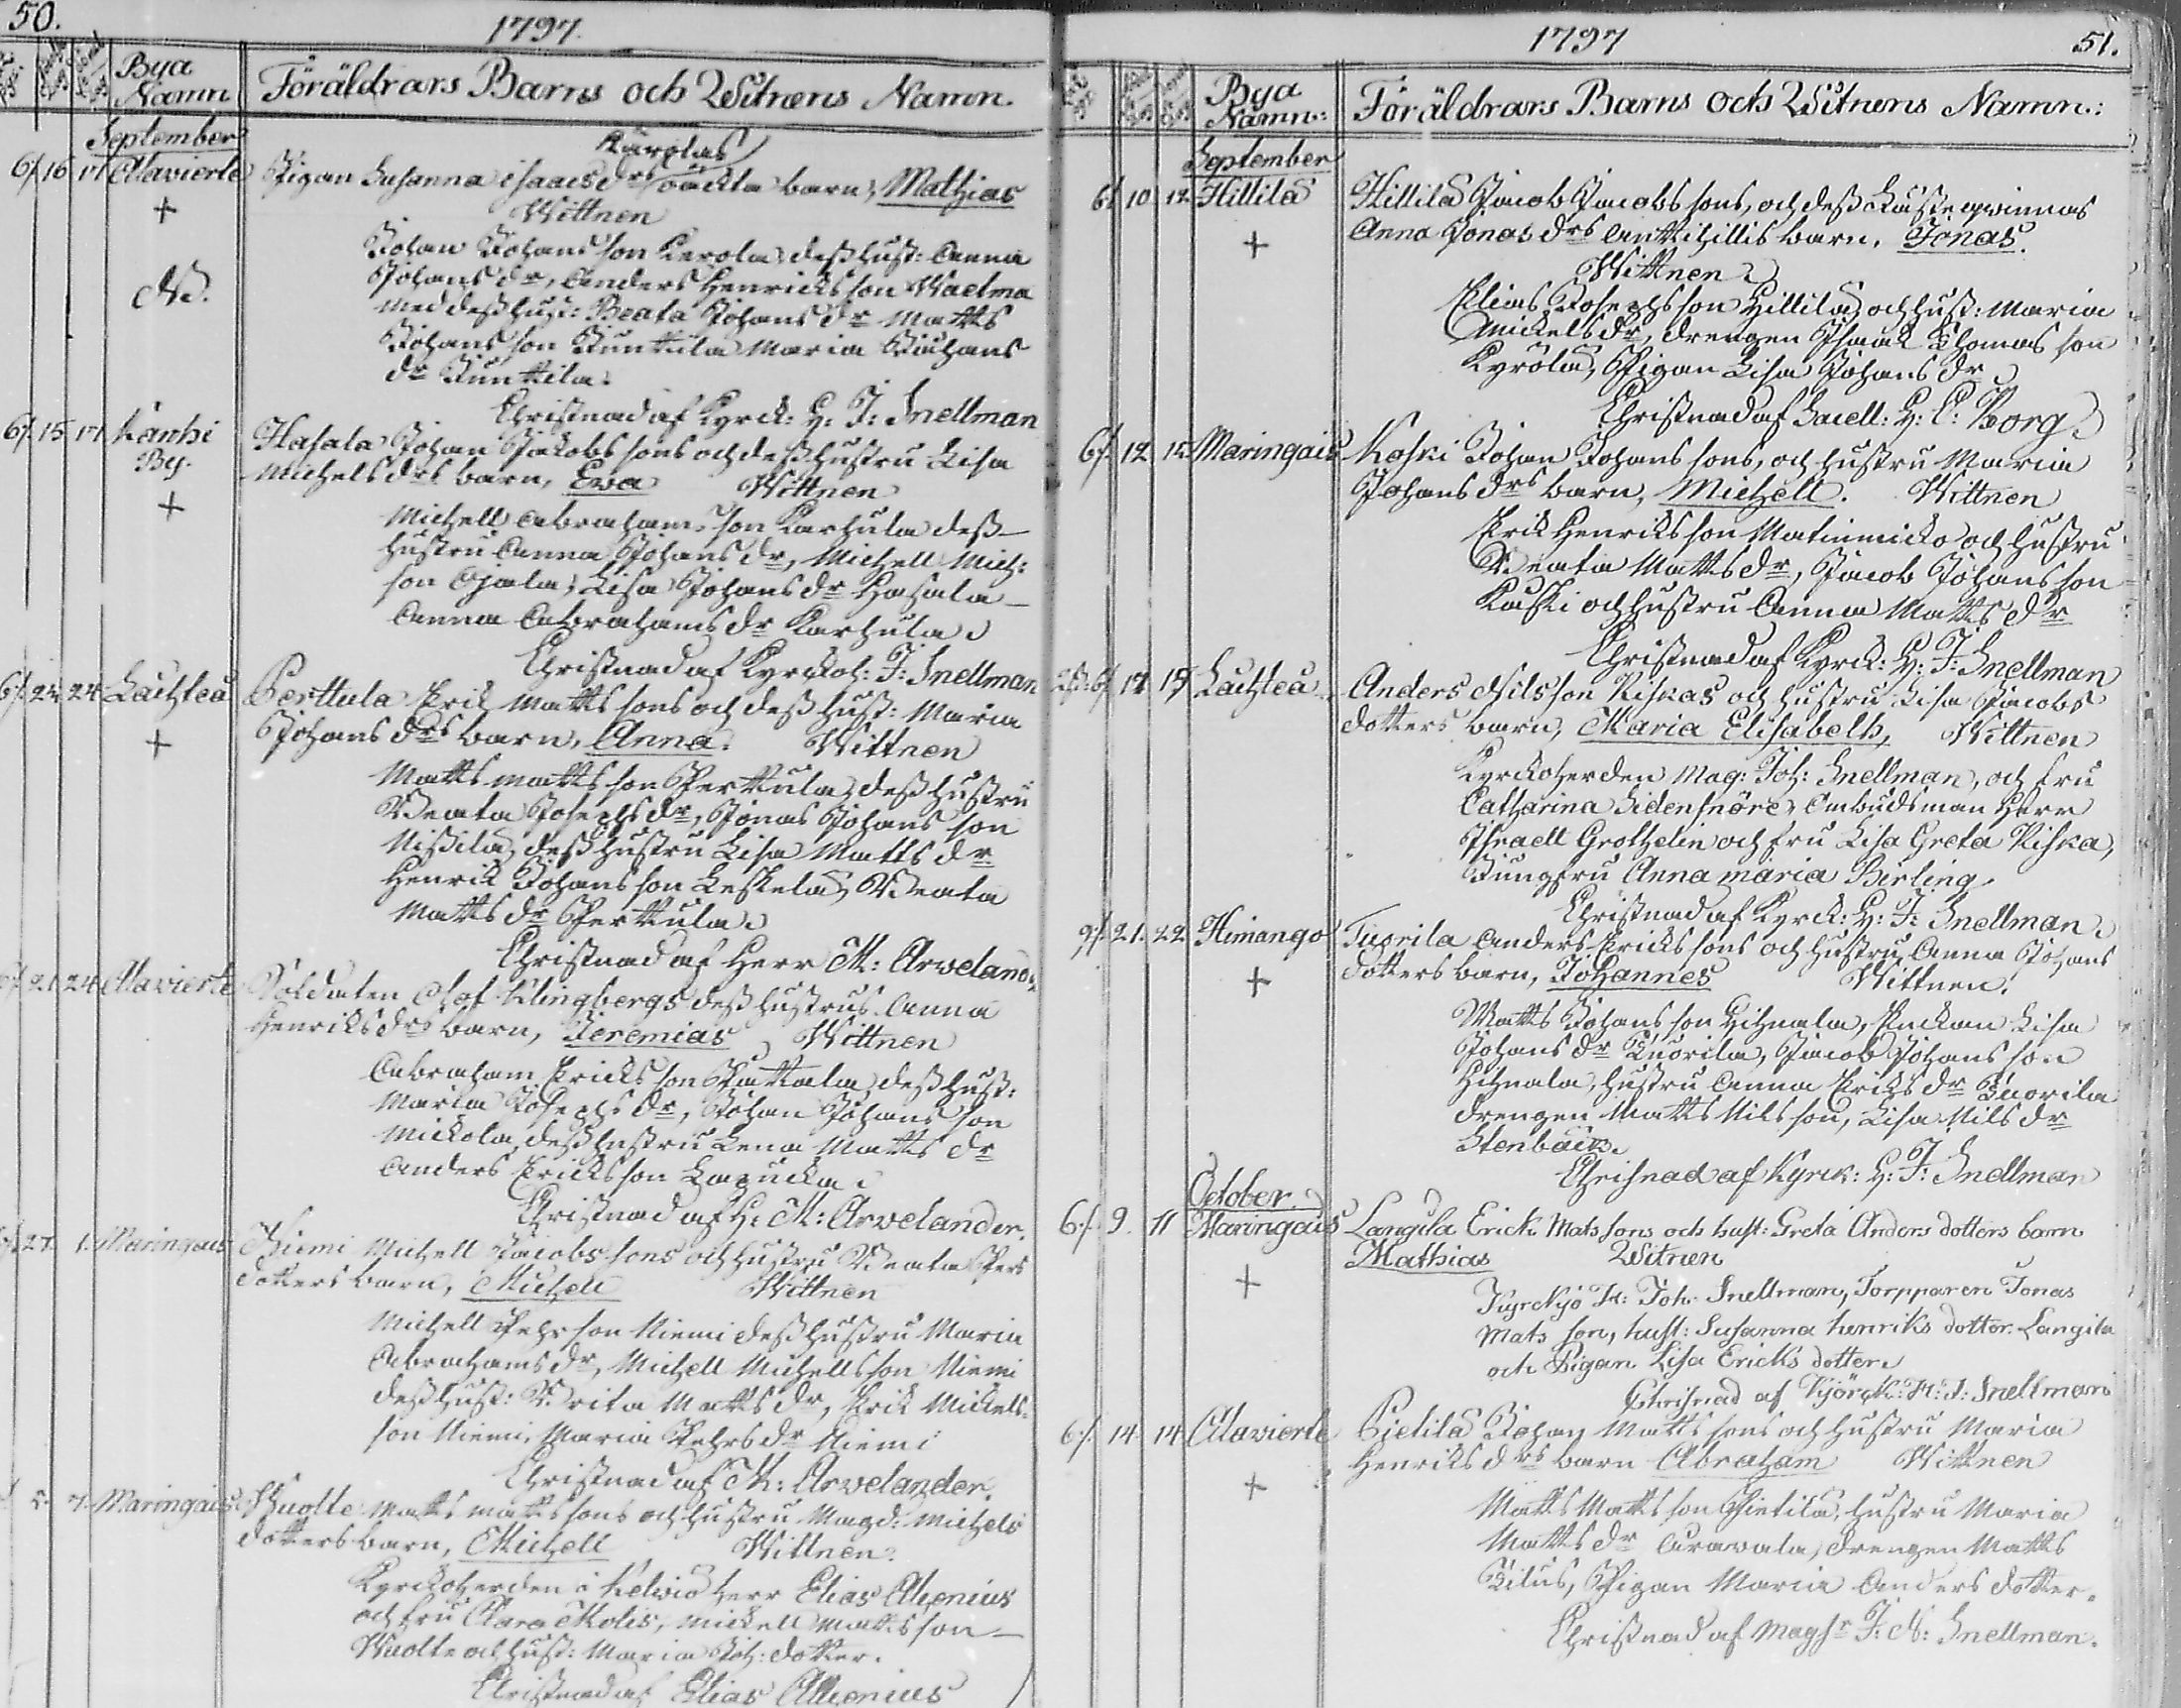 50.
1797.
Bya
Namn
Föräldrars Barns och Witnens Namn.
September
Kärolas
6/ 16 17 Alavierte Pigan Susanna Isaacs drs oäckta barn, Mathias
+ Wittnen
Johan Johansson Kerola, dess hust: Anna
Johans dr, Anders Henricksson Waelma
N. med dess hust: Beata Johans dr Matts
Johansson Junttila Maria Johans
dr Junttila.
Christnad af Kyrck: H: J: Snellman
6/. 15 17 Kanhi Hasala Johan Jakobs sons och dess hustru Lisa
By. Michels drs barn, Ewa Wittnen
+ Michell Abrahamsson Karhula dess
hustru Anna Johans dr, Michell Mich:
son Ojala, Lisa Johans dr Hasala
Anna Abrahams dr Karhula
Christnad af Kyrckoh: J: Snellman
6/. 24 24 Laihteå Perttula Erik Matts sons och dess hust: Maria
+ Johans drs barn, Anna. Wittnen
Matts Mattsson Perttula, dess hustru
Beata Josephs dr, Jonas Johansson
Nissilä, dess hustru Lisa Matts dr
Henrik Johansson Leskelä, Beata
Matts dr Perttula
Christnad af Herr M: Arveland:
6/ 21 24 Alavierte Soldaten Olof Klingbergs dess hustrus Anna
Henriks drs barn, Jeremias Wittnen
Abraham Ericksson Pattala dess hust:
Maria Josephs dr, Johan Johansson
Mickola, dess hustru Lena Matts dr
Anders Ericksson
Christnad af H: M: Arvelander.
27. 1. Maringais Niemi Michell Jacobs sons och hustru Beata Pers
dotters barn, Michell Wittnen
Michell Pehrsson Niemi dess hustru Maria
Abrahams dr, Michell Michellsson Niemi
dess hust: Brita Matts dr, Erik Mickels
son Niemi, Maria Pehrs dr Niemi
Christnad af M: Arvelander.
5. 7. Maringais Wuolte Matts Matts sons och hustru Magd: Michels
dotters barn, Michell Wittnen.
Kyrckoherden i Kelviå Herr Elias Alcenius
och fru Clara Molis, Mickell Mattsson
Wuolte och hust: Maria Joh: dotter.
Christnad af Elias Alcenius
1797
51.
Bya
Namn:
Föräldrars Barns och Witnens Namn.:
September
6/ 10 12 Hillilä Hillilä Jacob Jacobs sons, och dess Kåste qwinnas
+ Anna Jonas drs Anttihillis barn, Jonas.
Wittnen
Elias Josephsson Hillilä och hust: Maria
Mickels dr, drengen Isaak Thomas son
Kyrölä, Pigan Lisa Johans dr
Christnad af Sacell: H: C: Borg.
6/. 12 15 Maringais Koski Johan Johans sons, och hustru Maria
Johans drs barn, Michell. Wittnen
Erik Henriksson Matinmicko och hustru
Beata Matts dr, Jacob Johansson
Koski och hustru Anna Matts dr
Christnad af Kyrck: H: J: Snellman
17 19 Laihteå Anders Nilsson Kiskas och hustru Lisa Jacobs
dotters barn, Maria Elisabeth, Wittnen
Kyrckoherden Mag: Joh: Snellman, och fru
Catharina Sidensnöre, Ombudsman Herr
Israell Grothelin och fru Lisa Greta Kiska,
Jungfru Anna Maria Berling
Christnad af Kyrck: H: J: Snellman
9/. 21. 22 Himango Tuorila Anders Ericks sons och hustru Anna Johans
+ dotters barn, Johannes Wittnen.
Matts Johansson Hihnala, Enckan Lisa
Johans dr Tuorila, Jacob Johansson
Hihnala, hustru Anna Ericks dr Tuorila
drengen Matts Nilsson, Lisa Nils dr
Stenbäck.
Chrisnad af Kyrk: H: J: Snellman
October.
6./. 9. 11 Maringais Langila Erick Mats sons och hust: Greta Anders dotters barn
Mathias Witnen
+ Kyrckjo H: Joh. Snellman, Torpparen Jonas
Mats son, hust: Susanna henriks dotter. Langila
och Pigan Lisa Ericks dotter
Chrisnad af Kjörck: H: J: Snellman
6/. 14 14 Alavierte Pietilä Johan Matts sons och hustru Maria
Henriks drs barn Abraham Wittnen
+ Matts Mattsson Pietilä, hustru Maria
Matts dr Aravala, drengen Matts
Titus, Pigan Maria Anders dotter.
Christnad af Magst J: N: Snellman.